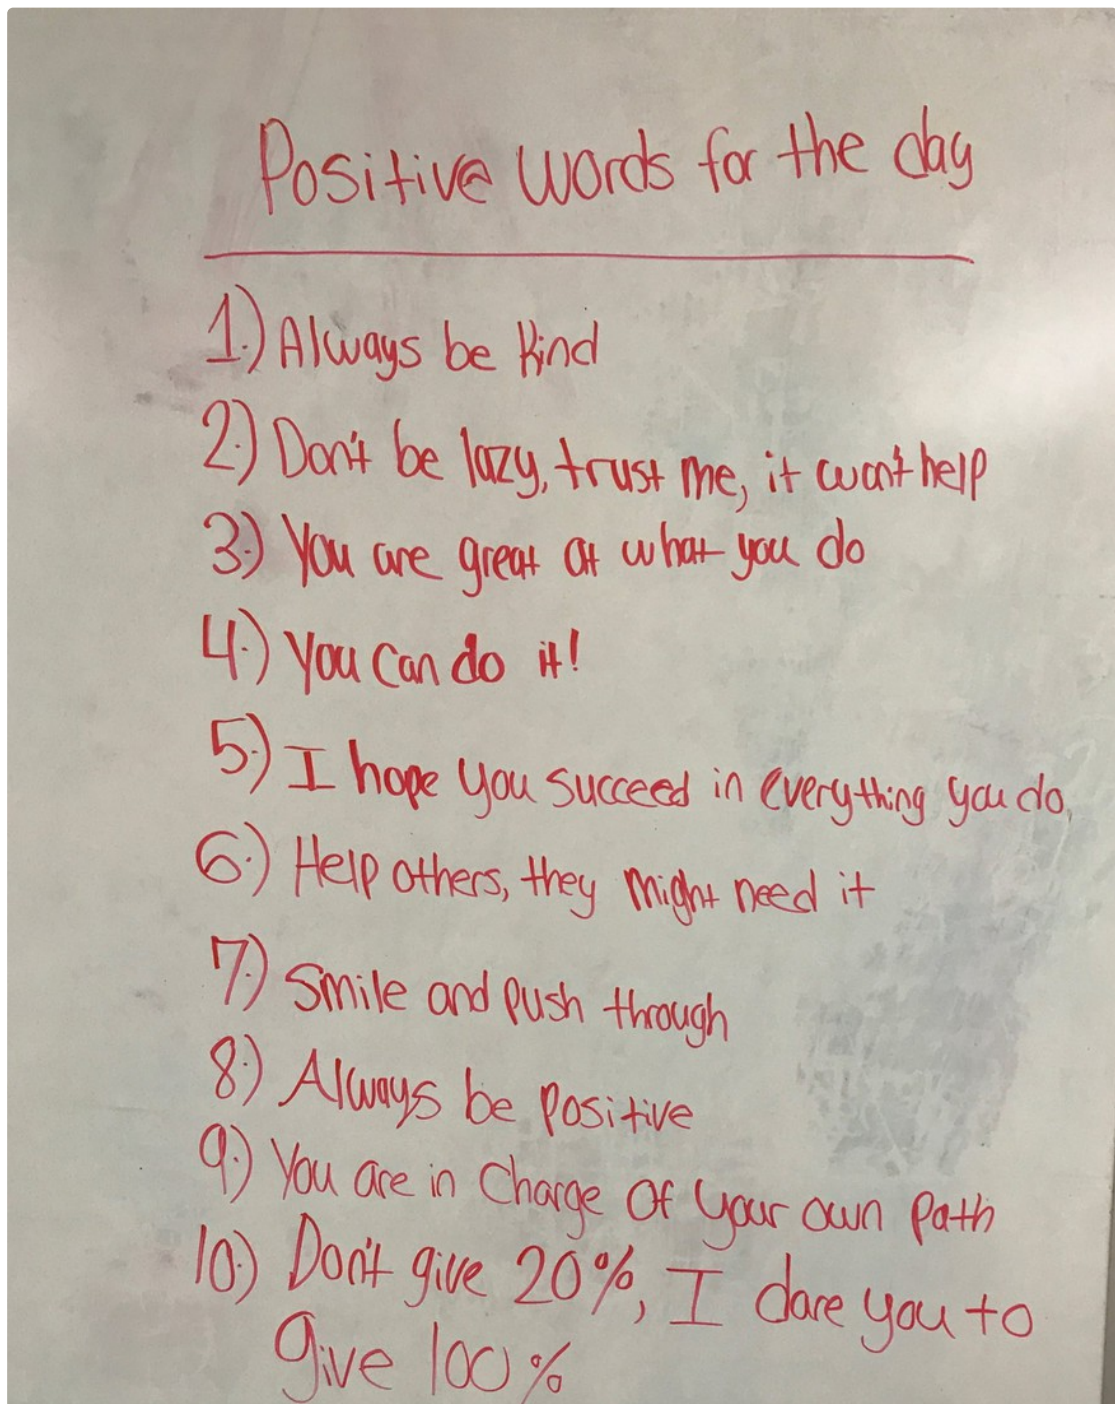 Positive words for the day
1.) Always be kind
2.) Don't be lazy, trust me, it won't help
3.) You are great at what you do
4.) You can do it!
5.) I hope you succeed in everything you do.
6.) Help others, they might need it
7.) Smile and push through
8.) Always be positive
9.) You are in charge of your own path
10.) Don't give 20%, I dare you to
give 100%